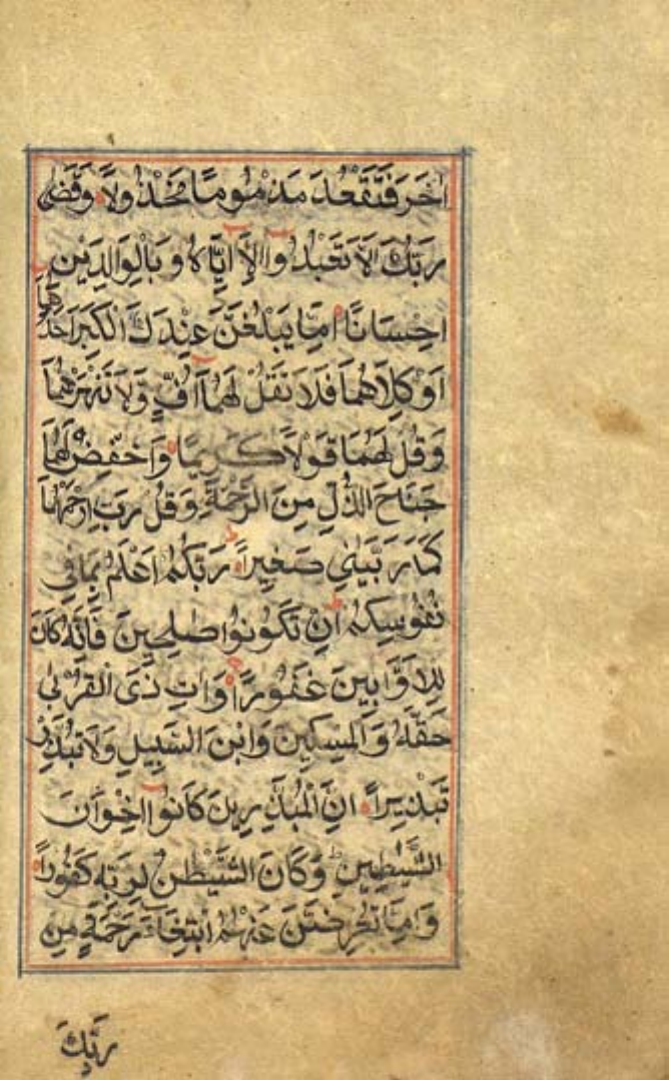 اٰخَرَ فَتَقْعُدَ مَذْمُومًا مَخْذُولًا وَقَضٰى
رَبُّكَ اَلَّا تَعْبُدُوا اِلَّا اِيَّاهُ وَبِالْوَالِدَيْنِ
اِحْسَانًا اِمَّا يَبْلُغَنَّ عِنْدَكَ الْكِبَرَ اَحَدُهُمَا
اَوْ كِلَاهُمَا فَلَا تَقُلْ لَهُمَا اُفٍّ وَلَا تَنْهَرْهُمَا
وَقُلْ لَهُمَا قَوْلًا كَرِيمًا وَاخْفِضْ لَهُمَا
جَنَاحَ الذُّلِّ مِنَ الرَّحْمَةِ وَقُلْ رَبِّ ارْحَمْهُمَا
كَمَا رَبَّيٰنِي صَغِيرًا رَبُّكُمْ اَعْلَمُ بِمَا فِي
نُفُوسِكُمْ اِنْ تَكُونُوا صٰلِحِينَ فَاِنَّهُ كَانَ
لِلْاَوَّابِينَ غَفُورًا وَاٰتِ ذَى الْقُرْبٰى
حَقَّهُ وَالْمِسْكِينَ وَابْنَ السَّبِيلِ وَلَا تُبَذِّرْ
تَبْذِيرًا اِنَّ الْمُبَذِّرِينَ كَانُوا اِخْوَانَ
الشَّيٰطِينِ وَكَانَ الشَّيْطٰنُ لِرَبِّهِ كَفُورًا
وَاِمَّا تُعْرِضَنَّ عَنْهُمُ ابْتِغَاءَ رَحْمَةٍ مِنْ
رَبِّكَ